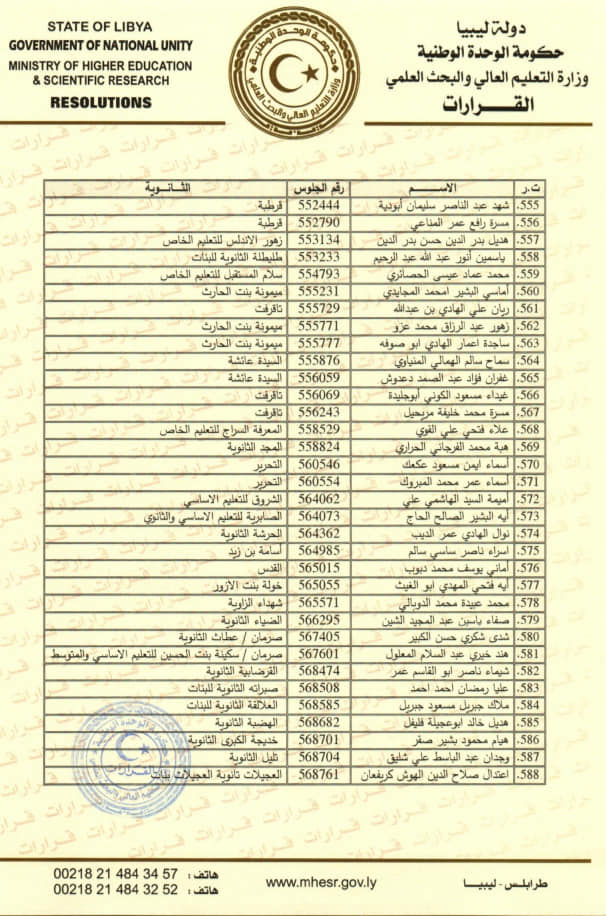 STATE OF LIBYA
GOVERNMENT OF NATIONAL UNITY
MINISTRY OF HIGHER EDUCATION
& SCIENTIFIC RESEARCH
RESOLUTIONS
دولة ليبيا
حكومة الوحدة الوطنية
وزارة التعليم العالي والبحث العلمي
القــــرارات
ت.ر الاســــم رقم الجلوس الثــانــويــة
555. شهد عبد الناصر سليمان أبودية 552444 قرطبة
556. مسرة رافع عمر المناعي 552790 قرطبة
557. هديل بدر الدين حسن بدر الدين 553134 زهور الاندلس للتعليم الخاص
558. ياسمين أنور عبد الله عبد الرحيم 553233 طليطلة الثانوية للبنات
559. محمد عماد عيسى الحصائري 554793 سلام المستقبل للتعليم الخاص
560. أماسي البشير امحمد المجايدي 555231 ميمونة بنت الحارث
561. ريان علي الهادي بن عبدالله 555729 تاقرفت
562. زهور عبد الرزاق محمد عزو 555771 ميمونة بنت الحارث
563. ساجدة اعمار الهادي ابو صوفه 555777 ميمونة بنت الحارث
564. سماح سالم الهمالي المنياوي 555876 السيدة عائشة
565. غفران فؤاد عبد الصمد دعدوش 556059 السيدة عائشة
566. غيداء مسعود الكوني أبوجليدة 556069 تاقرفت
567. مسرة محمد خليفة مريحيل 556243 تاقرفت
568. علاء فتحي علي القوي 558529 المعرفة السراج للتعليم الخاص
569. هبة محمد الفرجاني الحراري 558824 المجد الثانوية
570. أسماء ايمن مسعود عكعك 560546 التحرير
571. أسماء عمر محمد المبروك 560554 التحرير
572. أميمة السيد الهاشمي علي 564062 الشروق للتعليم الاساسي
573. أيه البشير الصالح الحاج 564073 الصابرية للتعليم الاساسي والثانوي
574. نوال الهادي عمر الديب 564362 الحرشة الثانوية
575. اسراء ناصر ساسي سالم 564985 أسامة بن زيد
576. أماني يوسف محمد دبوب 565015 القدس
577. أيه فتحي المهدي ابو الغيث 565055 خولة بنت الازور
578. محمد عبيدة محمد الدوبالي 565571 شهداء الزاوية
579. صفاء ياسين عبد المجيد الشين 566295 الضياء الثانوية
580. شدى شكري حسن الكبير 567405 صرمان / عطاث الثانوية
581. هند خيري عبد السلام المعلول 567601 صرمان / سكينة بنت الحسين للتعليم الاساسي والمتوسط
582. شيماء ناصر ابو القاسم عمر 568474 القرضابية الثانوية
583. عليا رمضان احمد احمد 568508 صبراته الثانوية للبنات
584. ملاك جبريل مسعود جبريل 568585 العلالقة الثانوية للبنات
585. هديل خالد ابوعجيلة فليفل 568682 الهضبة الثانوية
586. هيام محمود بشير صقر 568701 خديجة الكبرى الثانوية
587. وجدان عبد الباسط علي شليق 568704 تليل الثانوية
588. اعتدال صلاح الدين الهوش كريفعان 568761 العجيلات ثانوية العجيلات بنات
00218 21 484 34 57 هاتف :
00218 21 484 32 52 هاتف :
www.mhesr.gov.ly
طرابلس - ليبيـــا